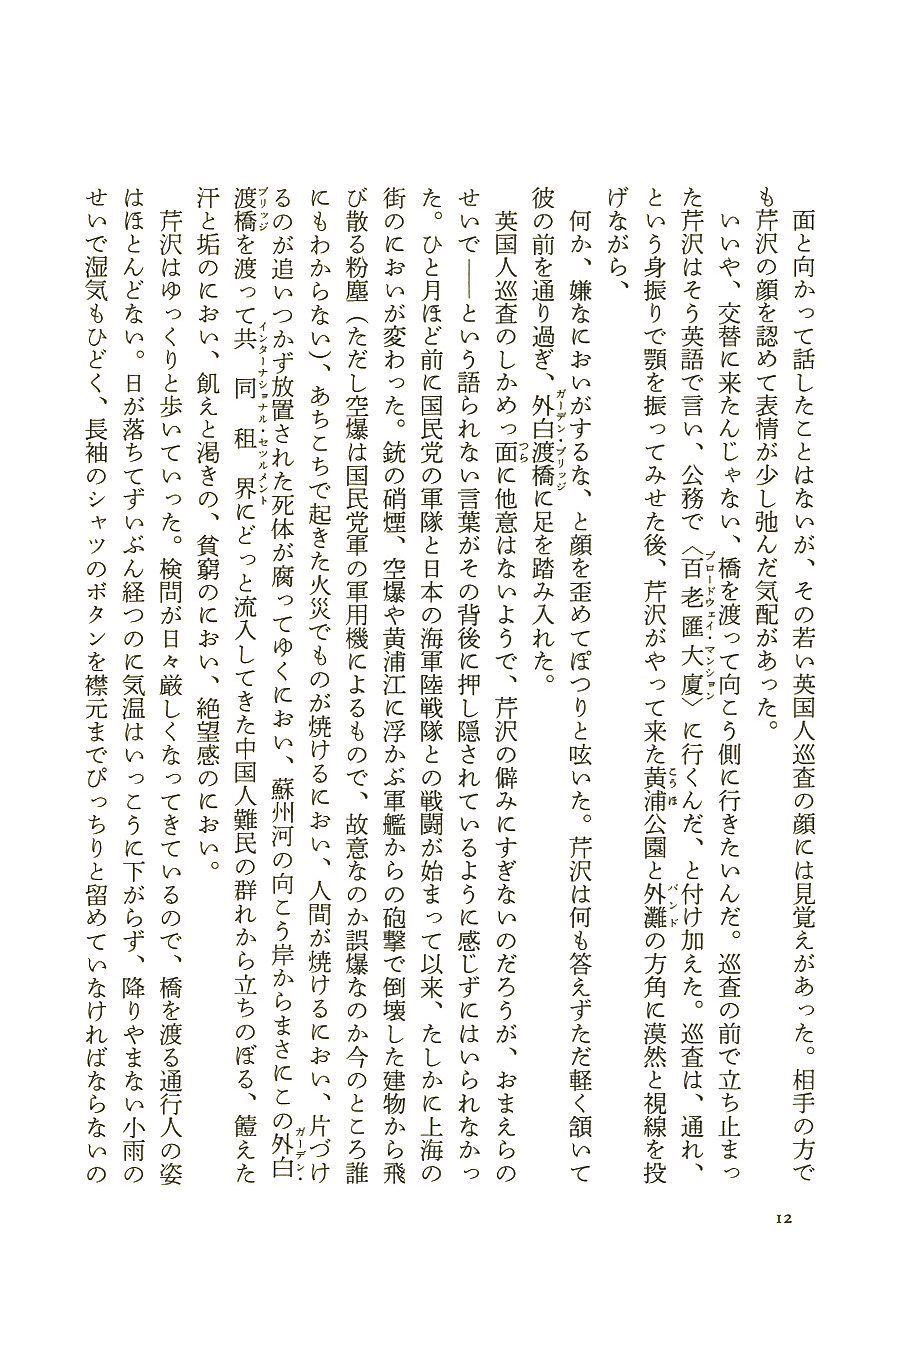 面と向かって話したことはないが、その若い英国人巡査の顔には見覚えがあった。相手の方で
も芹沢の顔を認めて表情が少し弛んだ気配があった。
いいや、交替に来たんじゃない、橋を渡って向こう側に行きたいんだ。巡査の前で立ち止まっ
た芹沢はそう英語で言い、公務で〈百老匯大廈〉に行くんだ、と付け加えた。巡査は、通れ、
ブロードウェイ・マンション
という身振りで顎を振ってみせた後、芹沢がやって来た黄浦公園と外灘の方角に漠然と視線を投
こうほ
バンド
げながら、
何か、嫌なにおいがするな、と顔を歪めてぽつりと呟いた。芹沢は何も答えずただ軽く頷いて
彼の前を通り過ぎ、外白渡橋に足を踏み入れた。
ガーデン・ブリッジ
英国人巡査のしかめっ面に他意はないようで、芹沢の僻みにすぎないのだろうが、おまえらの
つら
せいで――という語られない言葉がその背後に押し隠されているように感じずにはいられなかっ
た。ひと月ほど前に国民党の軍隊と日本の海軍陸戦隊との戦闘が始まって以来、たしかに上海の
街のにおいが変わった。銃の硝煙、空爆や黄浦江に浮かぶ軍艦からの砲撃で倒壊した建物から飛
び散る粉塵（ただし空爆は国民党軍の軍用機によるもので、故意なのか誤爆なのか今のところ誰
にもわからない）、あちこちで起きた火災でものが焼けるにおい、人間が焼けるにおい、片づけ
るのが追いつかず放置された死体が腐ってゆくにおい、蘇州河の向こう岸からまさにこの外白
ガーデン・
渡橋を渡って共同租界にどっと流入してきた中国人難民の群れから立ちのぼる、饐えた
ブリッジ
インターナショナル・セツルメント
汗と垢のにおい、飢えと渇きの、貧窮のにおい、絶望感のにおい。
芹沢はゆっくりと歩いていった。検問が日々厳しくなってきているので、橋を渡る通行人の姿
はほとんどない。日が落ちてずいぶん経つのに気温はいっこうに下がらず、降りやまない小雨の
せいで湿気もひどく、長袖のシャツのボタンを襟元までぴっちりと留めていなければならないの
12